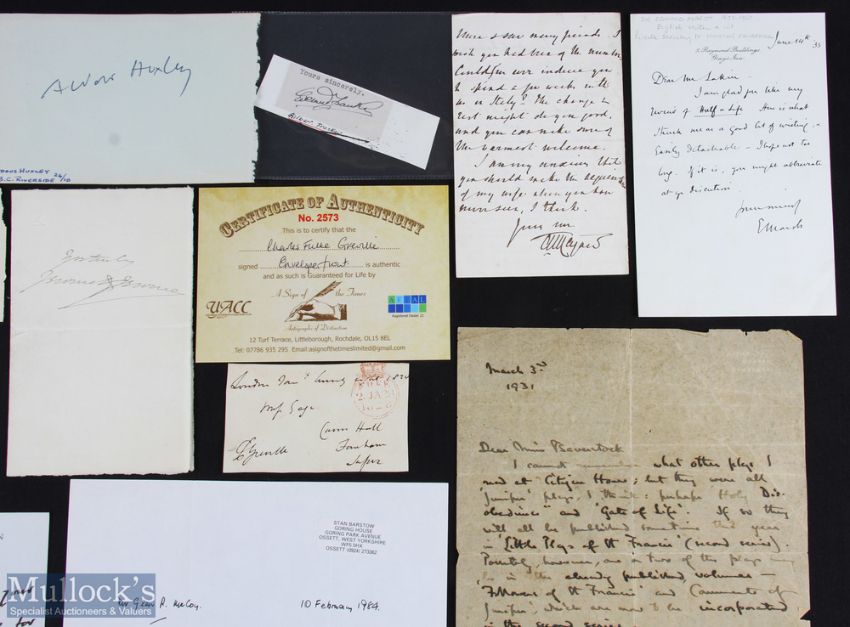 Aldous Huxley
ALDOUS HUXLEY 26/
B.C. RIVERSIDE /70
Yours sincerely,
There & saw many friends. I
wish you had been of the number
Could I ever induce you
to spend a few weeks with
us in Italy? The change &
rest might do you good,
and you can make sure of
the warmest welcome.
I am very anxious that
you should make the acquaintance
of my wife whom you have
never seen, I think.
Yours ever
June 14th 35
5 Raymond Buildings
Gray's Inn.
Dear Mr Lakin
I am glad you like my
review of Half a Life. Here is what
struck me as a good bit of writing -
Easily detachable - I hope not too
long. If it is, you might abbreviate
at yr discretion.
Yours sincerely
E Marsh
CERTIFICATE OF AUTHENTICITY
No. 2573
This is to certify that the
Charles Fulke Greville
signed Envelope front is authentic
and as such is Guaranteed for Life by
A Sign of the Times
UACC
AFTAL
Registered Dealer
Autographs of Distinction
12 Turf Terrace, Littleborough, Rochdale, OL15 8EL
Tel: 07786 935 295 Email:asignofthetimeslimited@gmail.com
Yours truly
Jerome K Jerome
London Jan
Mrs Gage
Hall
Farnham
C Greville
March 3rd
1931
Dear Miss Baverstock
I cannot remember what other plays I
read at Citizen House; but they were all
'Juniper' plays, I think: perhaps Holy Dis-
obedience" and 'Gate of Life'. If so they
will all be published sometime this year
in 'Little Plays of St Francis' (second series).
Possibly, however, one or two of the plays may
be in the already published volumes —
'Followers of St Francis' and 'Comments of
Juniper', which are now to be incorporated
in the second series.
STAN BARSTOW
GORING HOUSE
GORING PARK AVENUE
OSSETT, WEST YORKSHIRE
WF5 0HX
OSSETT (0924) 273362
Mr Glenn R. McCoy.
10 February 1984.
for
Mullock's
Specialist Auctioneers & Valuers